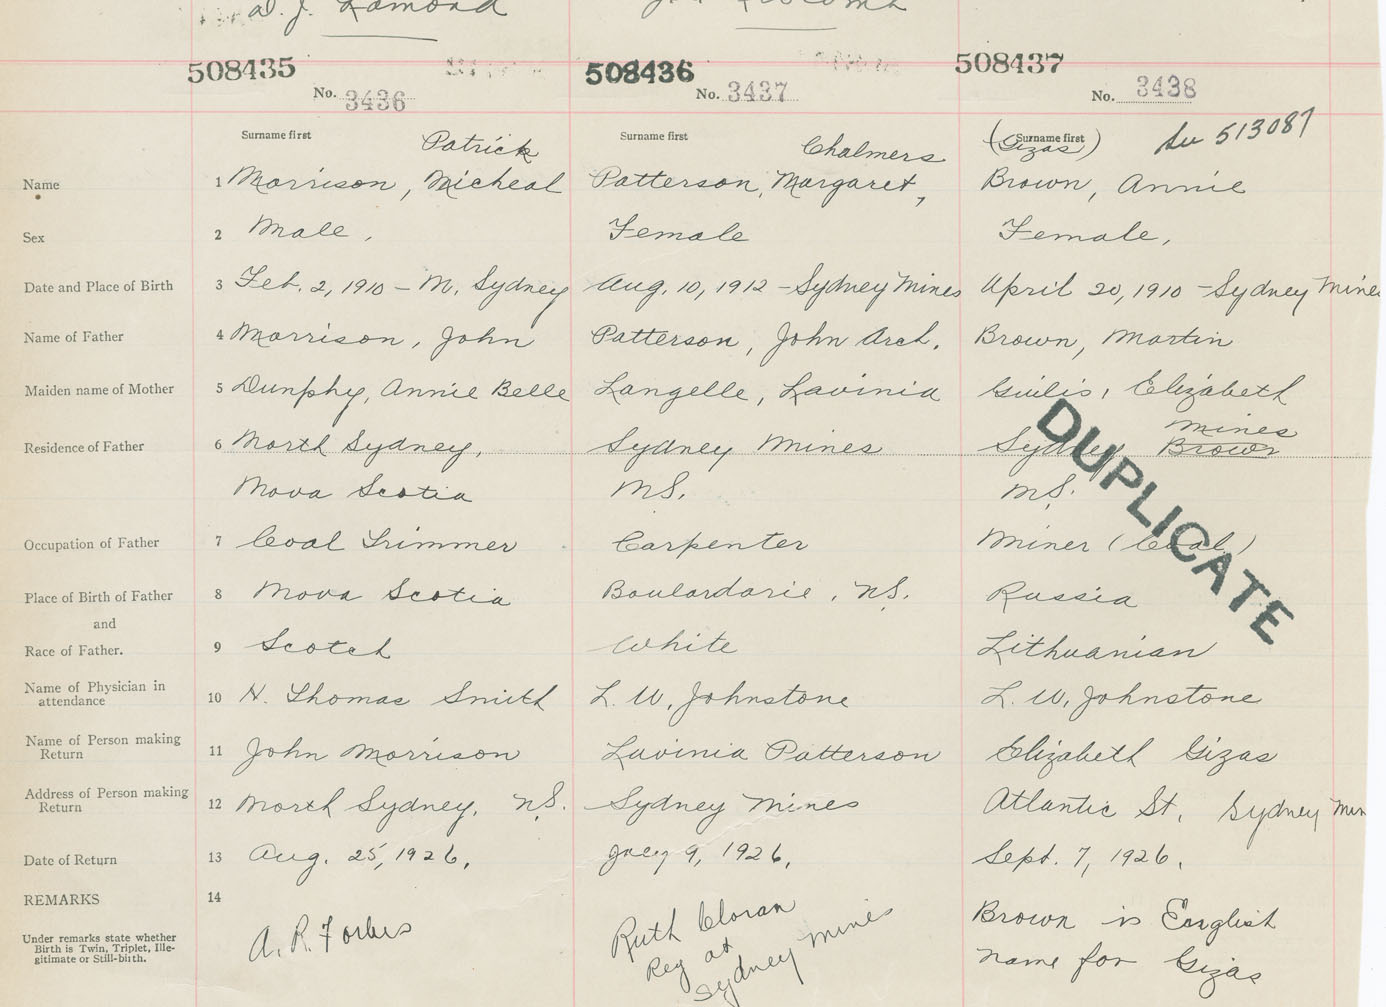 D. J. Lamond
508435
No. 3436
508436
No. 3437
508437
No. 3438
Surname first
Patrick
Surname first
Chalmers
(Surname first
Gizas)
See 513087
Name
1 Morrison, Micheal
Patterson, Margaret,
Brown, Annie
Sex
2 Male,
Female
Female,
Date and Place of Birth
3 Feb. 2, 1910 - N. Sydney
Aug. 10, 1912 - Sydney Mines
April 20, 1910 - Sydney Mines
Name of Father
4 Morrison, John
Patterson, John Arch.
Brown, Martin
Maiden name of Mother
5 Dunphy, Annie Belle
Langelle, Lavinia
Elizabeth
Mines
Residence of Father
6 North Sydney,
Sydney Mines
Sydney Brown
Nova Scotia
NS.
NS.
Occupation of Father
7 Coal Trimmer
Carpenter
Miner (Coal)
Place of Birth of Father
8 Nova Scotia
Boulardarie, NS.
Russia
and
Race of Father.
9 Scotch
White
Lithuanian
Name of Physician in
attendance
10 H. Thomas Smith
L. W. Johnstone
L. W. Johnstone
Name of Person making
Return
11 John Morrison
Lavinia Patterson
Elizabeth Gizas
Address of Person making
Return
12 North Sydney, NS.
Sydney Mines
Atlantic St, Sydney Min
Date of Return
13 Aug. 25, 1926,
July 9, 1926,
Sept. 7, 1926,
REMARKS
14
Under remarks state whether
Birth is Twin, Triplet, Ille-
gitimate or Still-birth.
A. R. Forbes
Ruth Cloran
Reg at
Sydney Mines
Brown is English
name for Gizas
DUPLICATE